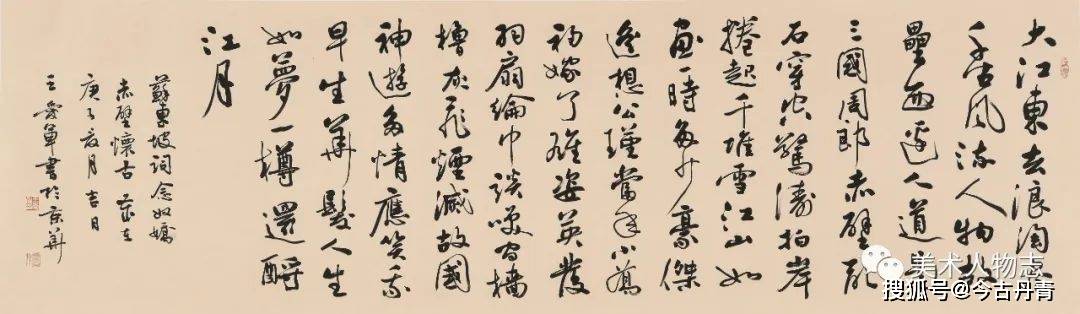 大江東去浪淘盡
千古風流人物故
壘西邊人道是
三國周郎赤壁亂
石穿空驚濤拍岸
捲起千堆雪江山如
畫一時多少豪傑
遙想公瑾當年小喬
初嫁了雄姿英發
羽扇綸巾談笑間檣
櫓灰飛煙滅故國
神遊多情應笑我
早生華髮人生
如夢一樽還酹
江月
蘇東坡詞念奴嬌
赤壁懷古 歲在
庚子夏月吉日
王愛軍書於京華
美术人物志
搜狐号@今古丹青